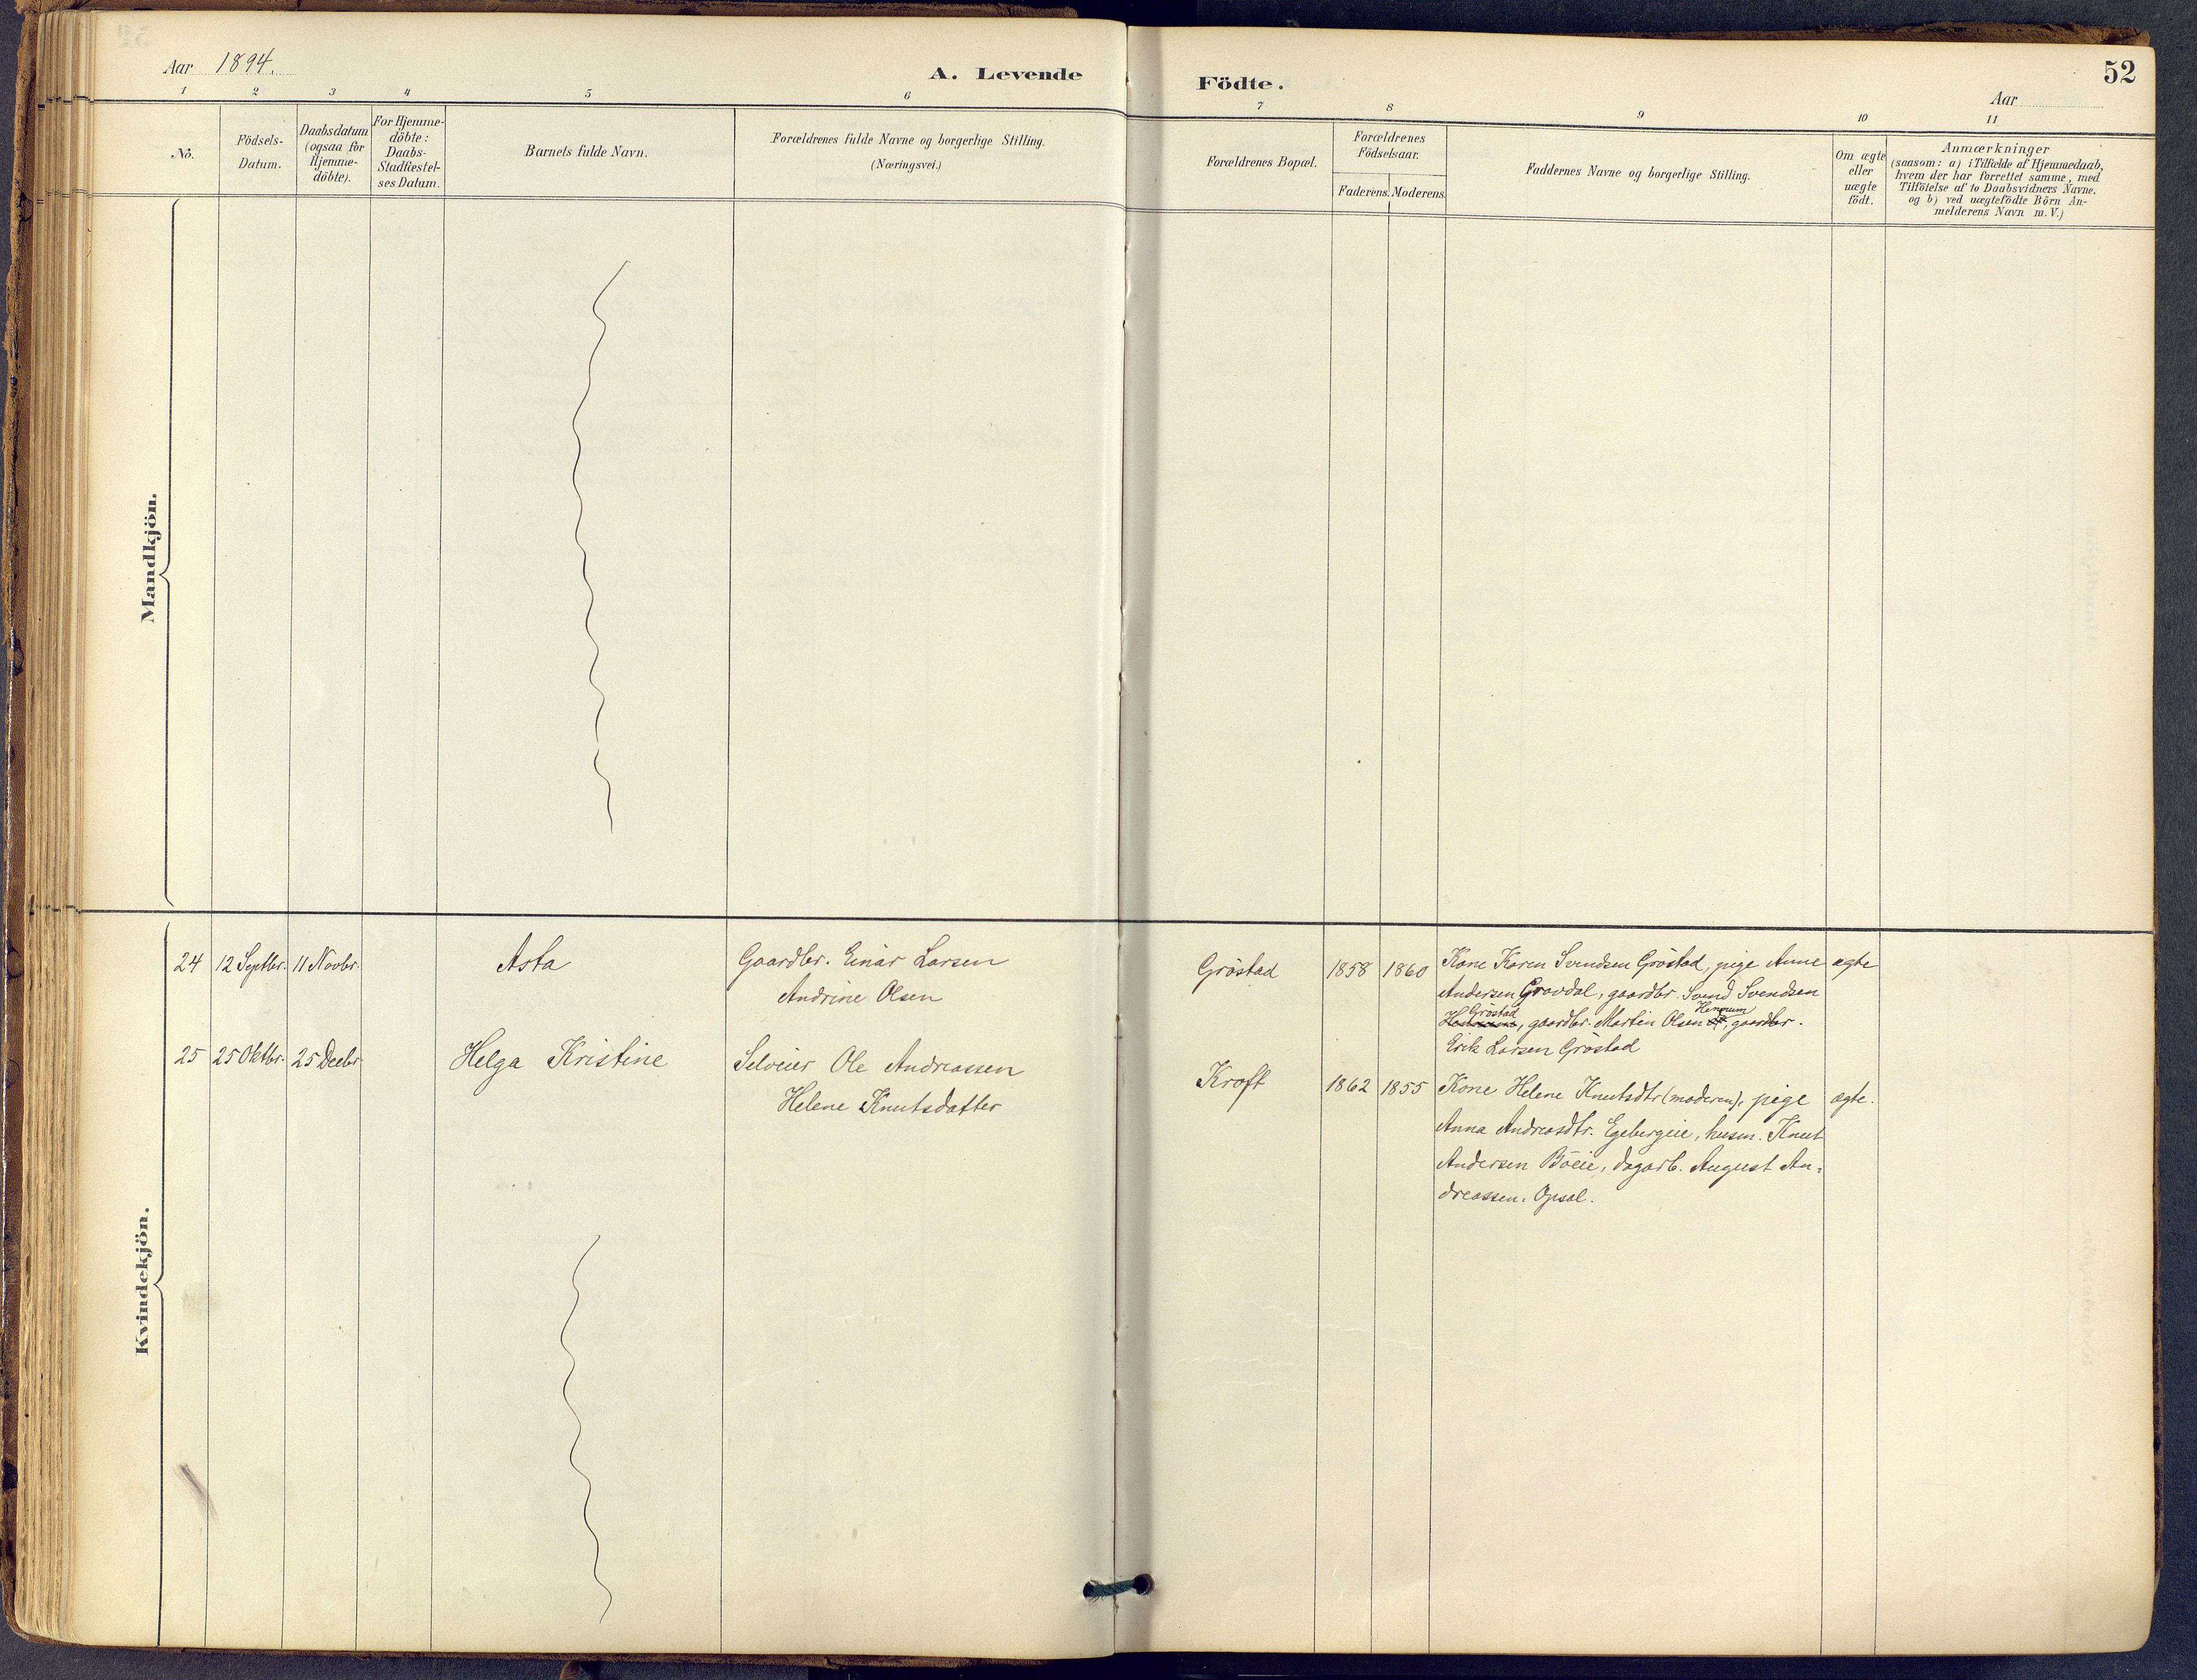 Aar 1894.
A. Levende Födte.
52
Aar
1 2 3 4 5 6 7 8 9 10 11
No.
Födsels-
Datum.
Daabsdatum
(ogsaa for
Hjemme-
döbte).
For Hjemme-
döbte:
Daabs-
Stadfæstel-
ses Datum.
Barnets fulde Navn.
Forældrenes fulde Navne og borgerlige Stilling.
(Næringsvei.)
Forældrenes Bopæl.
Forældrenes
Födselsaar.
Faderens. Moderens.
Faddernes Navne og borgerlige Stilling.
Om ægte
eller
uægte
födt.
Anmærkninger
(saasom: a) i Tilfælde af Hjemmedaab,
hvem der har forrettet samme, med
Tilföielse af to Daabsvidners Navne.
og b) ved uægtefödte Börn An-
melderens Navn m. V.)
Mandkjön.
Kvindekjön.
24 12 Septbr. 11 Novbr. Asta
Gaardbr. Einar Larsen
Andrine Olsen
Gröstad 1858 1860
Kone Karen Svendsen Gröstad, pige Anne
Andersen Gravdal, gaardbr. Svend Svendsen
Gröstad, gaardbr. Martin Olsen Hennum, gaardbr.
Erik Larsen Gröstad
ægte
25 25 Oktbr. 25 Decbr. Helga Kristine
Selveier Ole Andreassen
Helene Knutsdatter
Kroft 1862 1855
Kone Helene Knutsdtr (moderen), pige
Anna Andreasdtr. Egebergeie, husm. Knut
Andersen Böeie, dagarb. August An-
dreassen. Opsal.
ægte.